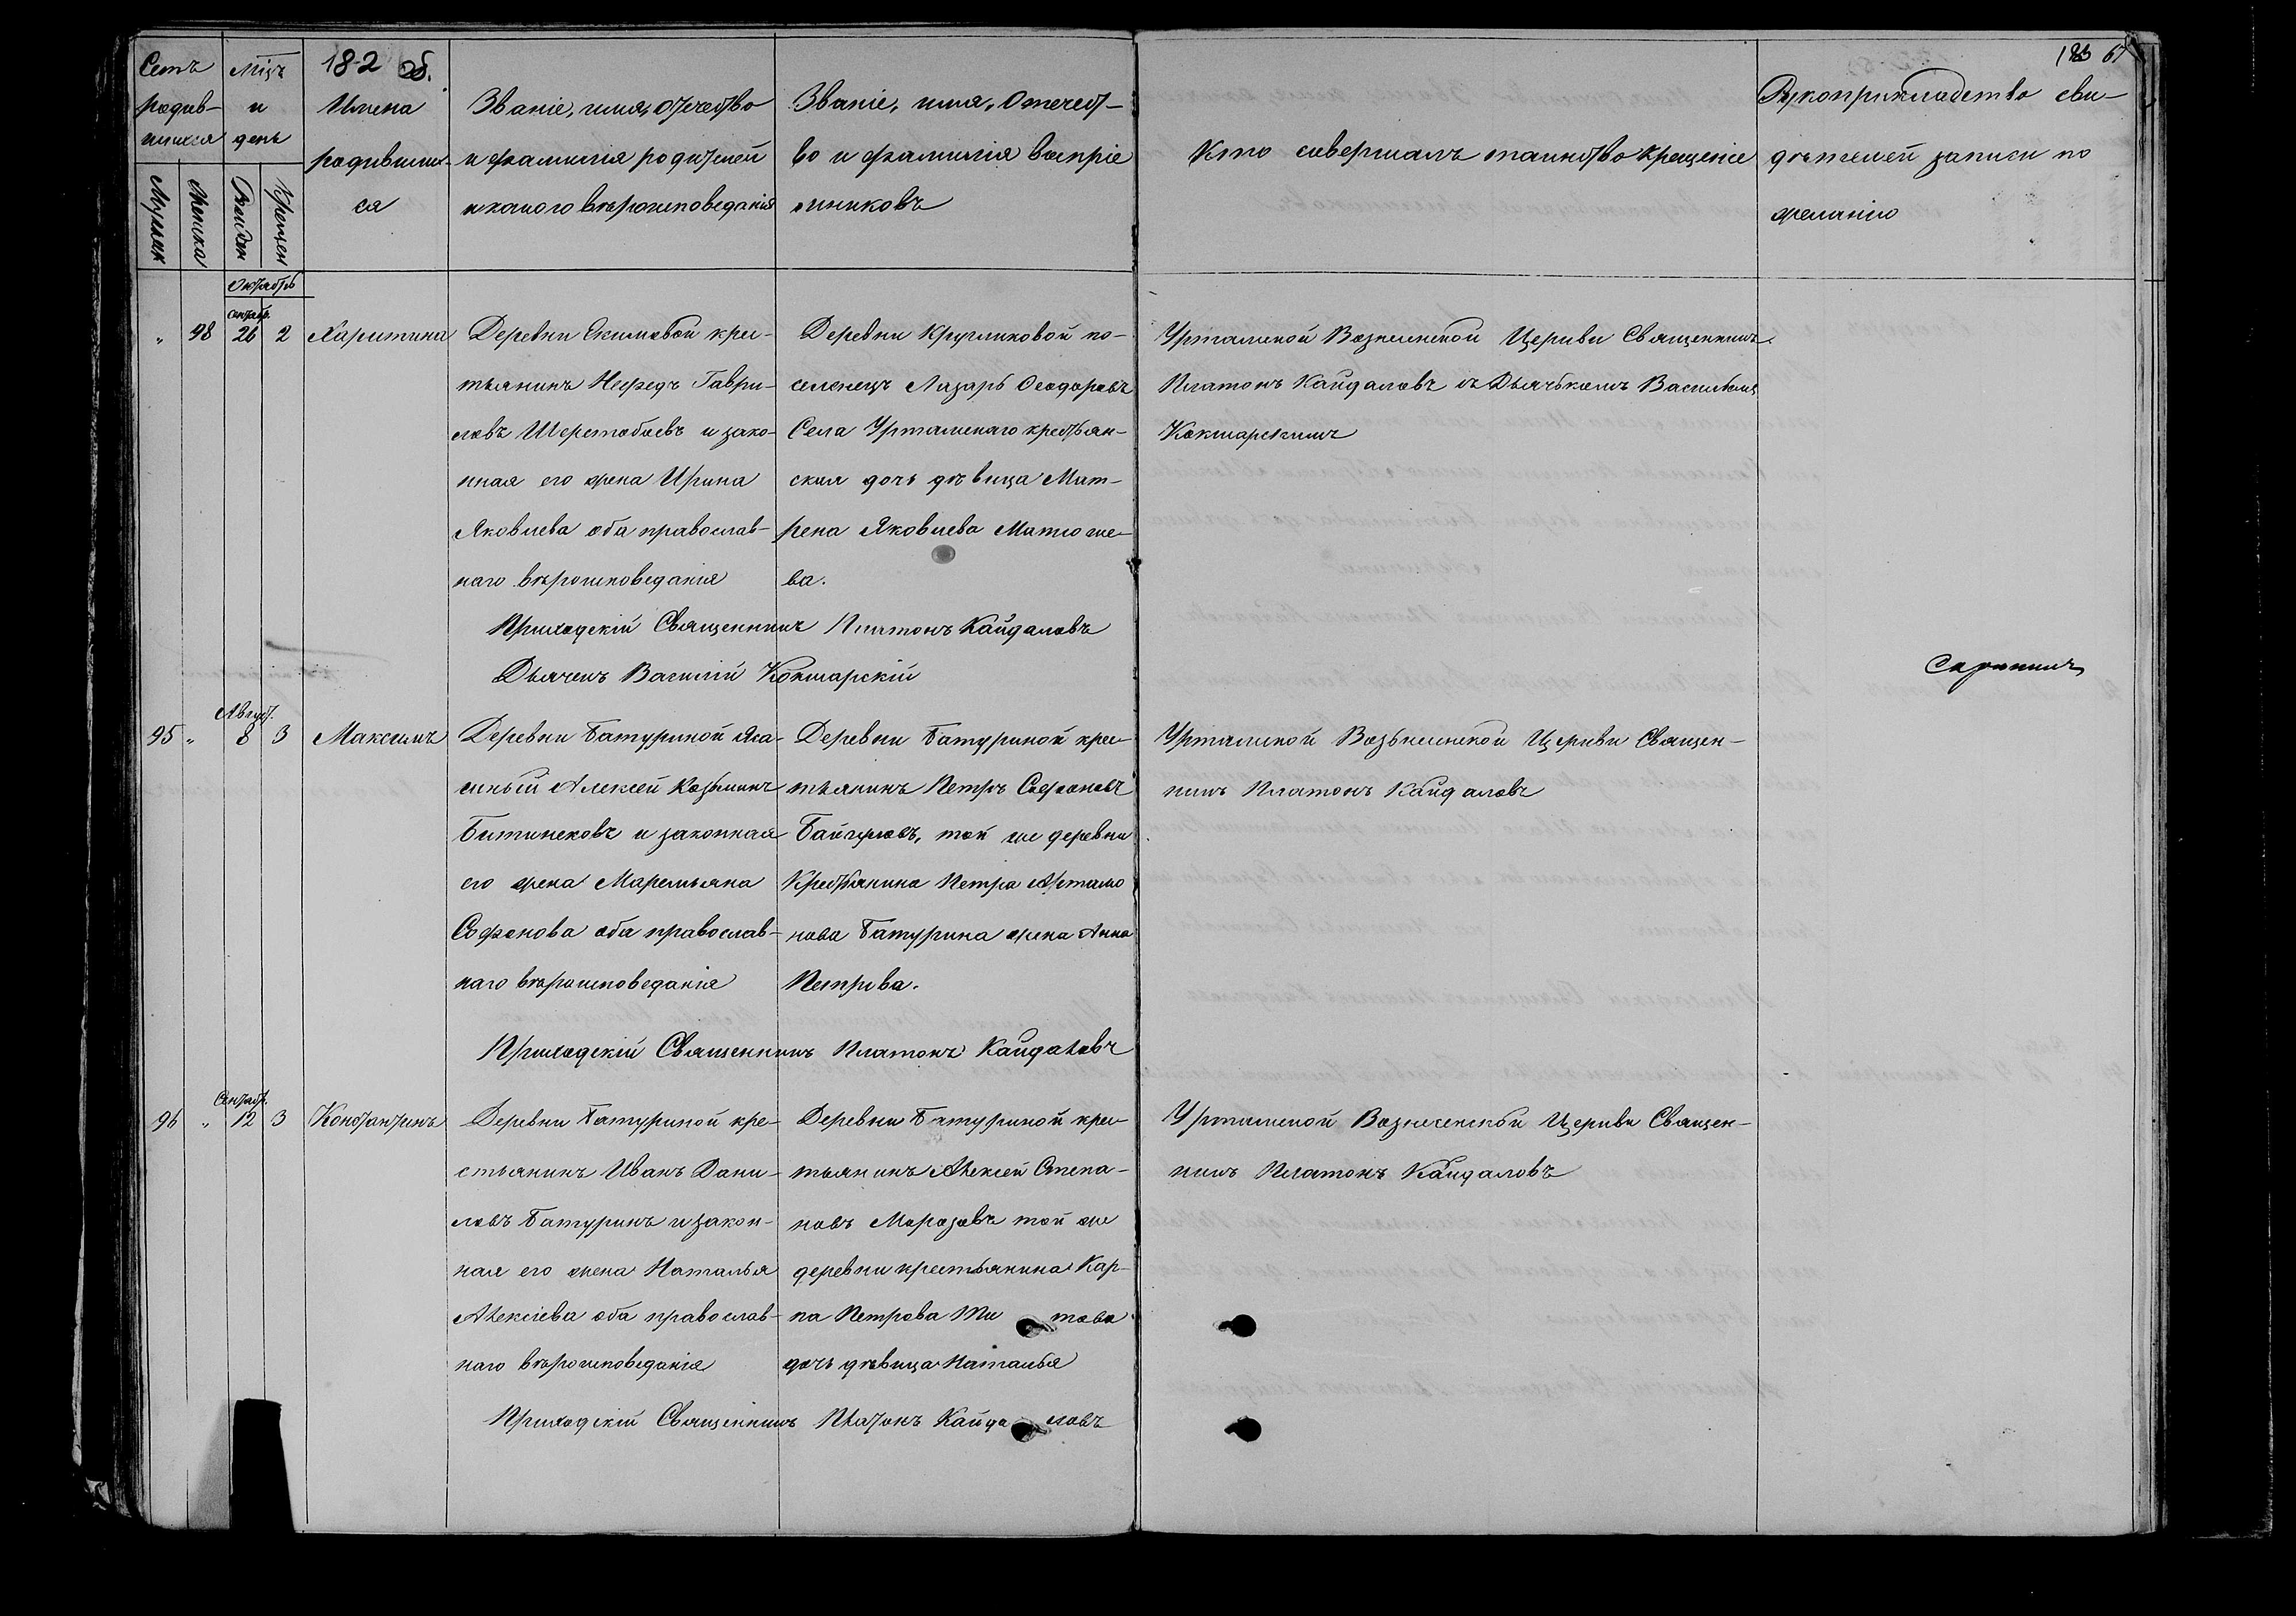 182 об.
183 67
Счетъ родив-шихся
Мужеска
Женска
Мцъ и день
Рожден
Крещен
Имена родивших-ся
Званіе, имя, отчество
и фамилія родителей
и какого вѣроисповеданія
Званіе, имя, отечест-
во и фамилія воспріе
мниковъ
Кто совершалъ таинство крещенія
Рукоприкладство сви-
дѣтелей записи по
желанію
Октябрь
сентябр.
" 98 26 2 Харитина
Деревни Екимовой крес-
тьянинъ Нефедъ Гаври-
ловъ Шеретобоевъ и зако-
нная его жена Ирина
Яковлева оба православ-
наго вѣроисповеданія
Деревни Кругликовой по-
селенецъ Лазарь Ѳеодоровъ
Села Уртамскаго крестьян-
ская дочь дѣвица Мат-
рена Яковлева Матюше-
ва.
Уртамской Вознесенской Церкви Священникъ
Платонъ Кайдаловъ съ Дьячькомъ Васильемъ
Кокшарскимъ
Приходскій Священникъ Платонъ Кайдаловъ
Дьячекъ Василій Кокшарскій
Август.
95 " 8 3 Максимъ
Деревни Батуриной Яса-
шный Алексей Козьминъ
Битинековъ и законная
его жена Маремьяна
Софонова оба православ-
наго вѣроисповеданія
Деревни Батуриной крес-
тьянинъ Петръ Софоновъ
Байгуловъ, той же деревни
Крестьянина Петра Артамо
нова Батурина жена Анна
Петрова.
Уртамской Возьнесенской Церкви Священ-
никъ Платонъ Кайдаловъ
Приходскій Священникъ Платонъ Кайдаловъ
Сентябр.
96 " 12 3 Константинъ
Деревни Батуриной кре-
стьянинъ Иванъ Дани-
ловъ Батуринъ и закон-
ная его жена Наталья
Алексіева оба православ-
наго вѣроисповеданія
Деревни Батуриной крес-
тьянинъ Алексей Степа-
новъ Морозовъ той же
деревни крестьянина Кар-
па Петрова Титова
дочь дѣвица Наталья
Уртамской Вознесенской Церкви Священ-
никъ Платонъ Кайдаловъ
Приходскій Священникъ Платонъ Кайдаловъ